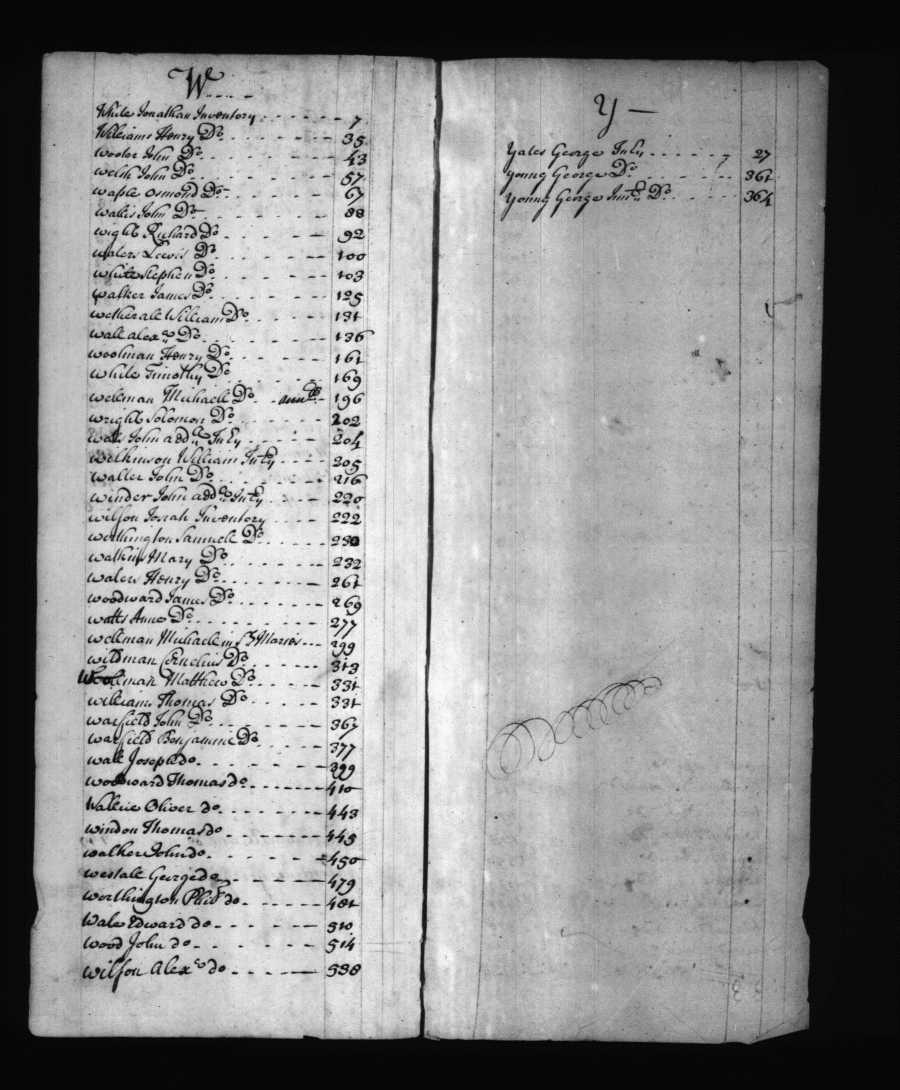 W
White Jonathan Inventory 7
Williams Henry Do 35
Wooter John Do 43
Welsh John Do 57
Waple Osmond Do 67
Wallis John Do 88
Wight Richard Do 92
Waters Lewis Do 100
White Stephen Do 103
Walker James Do 125
Wetherall William Do 131
Wall alexr Do 136
Woolman Henry Do 161
White Timothy Do 169
Wellman Michaell Do 196
Wright Solomon Do 202
John addl Inty 204
Wilkinson William Inty 205
Waller John Do 216
Winder John addl Inty 220
Wilson Josiah Inventory 222
Worthington Samuell Do
Watkins Mary Do 232
Waters Henry Do 261
Woodward James Do 269
Watts Anne Do 277
Wellman Michaell in St Maries 299
Wildman Cornelius Do 313
Woolman Matthew Do 331
Williams Thomas Do 331
Warfield John Do 367
Warfield Benjamine Do 377
Wall Joseph do 399
Woodward Thomas do 410
Oliver do 443
Windon Thomas do 445
Walker John do 450
Westall George do 479
Worthington do 481
Wale Edward do 510
Wood John do 514
Wilson Alexr do 538
Y
Yates George Inty 27
Young George Do 361
Young George Do 364